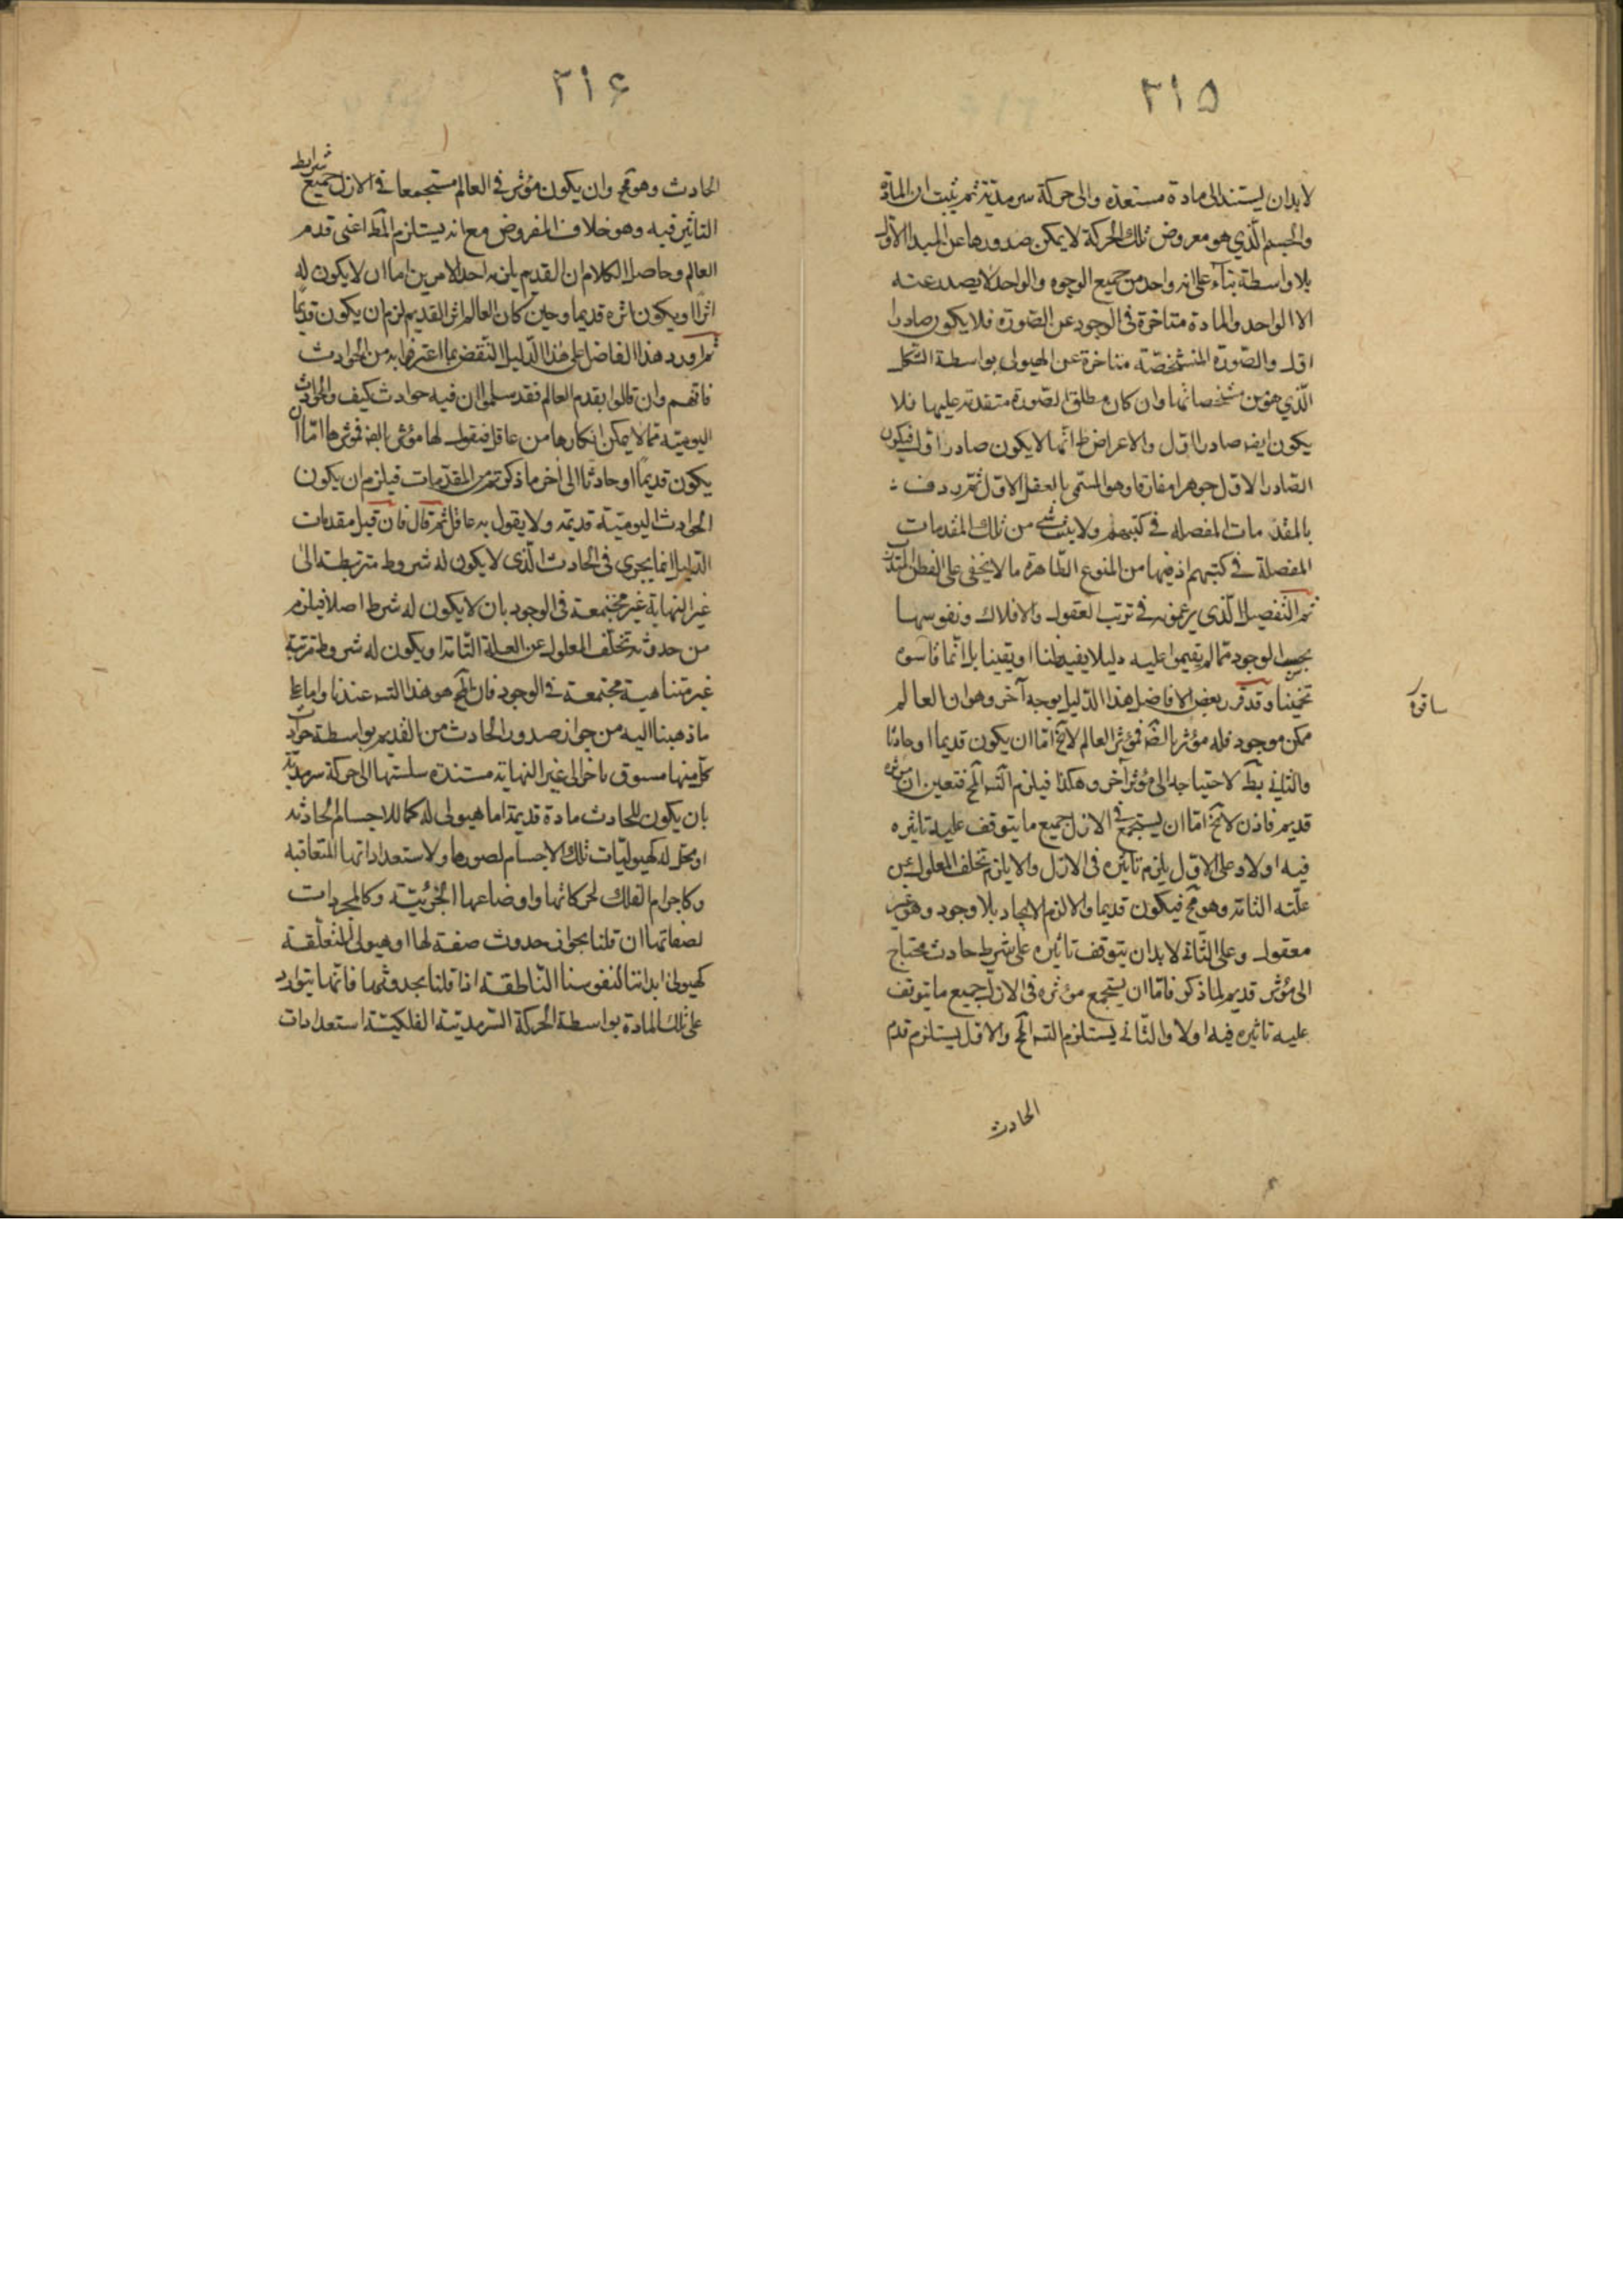 ٢١٥
لابد ان يستند الى مادة مستعدة والى حركة سرمدية ثم يثبت ان المادة
والجسم الّذي هو معروض تلك الحركة لا يمكن صدورها عن المبدا الاول
بلا واسطة بناء على انه واحد من جميع الوجوه والواحد لا يصدر عنه
الا الواحد والمادة متاخرة فى الوجود عن الصّورة فلا يكون صادرا
اول والصّورة المتشخّصة متاخرة عن الهيولى بواسطة الشكل
الّذي هو من مشخصاتها وان كان مطلق الصّورة متقدمة عليها فلا
يكون ايضا صادرا اوّل والاعراض ظ انّها لا يكون صادرا اول فيكون
الصّادر الاوّل جوهرا مفارقا وهو المسمّى بالعقل الاوّل
بالمقدمات المفصله في كتبهم ولا يثبت شئ من تلك المقدمات
المفصلة في كتبهم اذ فيها من المنوع الظّاهرة ما لا يخفى على الفطن
ثم التّفصيل الّذى يزعمونه في ترتب العقول والافلاك ونفوسها
بحسب الوجود ممّا لم يقيموا عليه دليلا يفيد ظنا او يقينا بل انّما قاسوه
تخمينا وقد قرر بعض الافاضل هذا الدّليل بوجه آخر وهو ان العالم
ساقره
ممكن موجود فله مؤثر بالضّ فمؤثر العالم لا يخ امّا ان يكون قديما او حادثا
والثاني بط لاحتياجه الى مؤثر آخر وهكذا فيلزم التّسه المح فتعين ان مؤثره
قديم فاذن لا يخ امّا ان يستجمع في الازل جميع ما يتوقف عليه تاثيره
فيه اولا وعلى الاوّل يلزم تاثيره فى الازل والا يلزم تخلف المعلول عن
علّته التامه وهو مح فيكون قديما والا لزم الايجاد بلا وجود وهو غير
معقول وعلى الثّاني لابد ان يتوقف تاثيره على شرط حادث محتاج
الى مؤثر قديم لما ذكر فامّا ان يستجمع مؤثره فى الازل جميع ما يتوقف
عليه تاثيره فيه اولا والثّاني يستلزم التسه المح والاول يستلزم قدم
الحادث
٢١۶
الحادث وهو مح وان يكون مؤثر فى العالم مستجمعا في الازل جميع شرايط
التاثير فيه وهو خلاف المفروض مع انه يستلزم المط اعنى قدم
العالم وحاصل الكلام ان القديم يلزمه احد الامرين اما ان لا يكون له
اثر او يكون اثره قديما وحين كان العالم اثر القديم لزم ان يكون قديما
ثم اورد هذا الفاضل على هذا الدّليل النّقض بما اعترفوا به من الحوادث
فانّهم وان قالوا بقدم العالم فقد سلموا ان فيه حوادث كيف والحوادث
اليوميّه ممّا لا يمكن انكارها من عاقل فنقول لها مؤثر بالضّ فمؤثرها امّا ان
يكون قديمًا او حادثا الى آخر ما ذكرتم من المقدّمات فيلزم ان يكون
الحوادث اليوميّة قديمة ولا يقول به عاقل ثم قال فان قيل مقدمات
الدّليل انما يجرى فى الحادث الّذى لا يكون له شروط مترتبطة الى
غير النهاية غير مجتمعة فى الوجود بان لا يكون له شرط اصلا فيلزم
من حدوثه تخلّف المعلول عن العلة التّامة او يكون له شروط مترتبة
غير متناهية مجتمعة في الوجود فان المح هو هذا التسه عندنا واما على
ما ذهبنا اليه من جواز صدور الحادث من القديم بواسطة حوادث
كلّ منها مسبوق باخر الى غير النهاية مستندة سلسلتها الى حركة سرمديّة
بان يكون للحادث مادة قديمة اما هيولى له كما للاجسام الحادثه
او محل له كهيوليّات تلك الاجسام لصورها ولاستعداداتها المتعاقبة
وكاجرام الفلك لحركاتها واوضاعها الجزئيّة وكالمجردات
لصفاتها ان قلنا بجواز حدوث صفة لها او هيولى لمتعلّقة
كهيولى ابداننا لنفوسنا النّاطقة اذا قلنا بحدوثها فانّها يتوارد
على تلك المادة بواسطة الحركة السّرمديّة الفلكيّة استعدادات